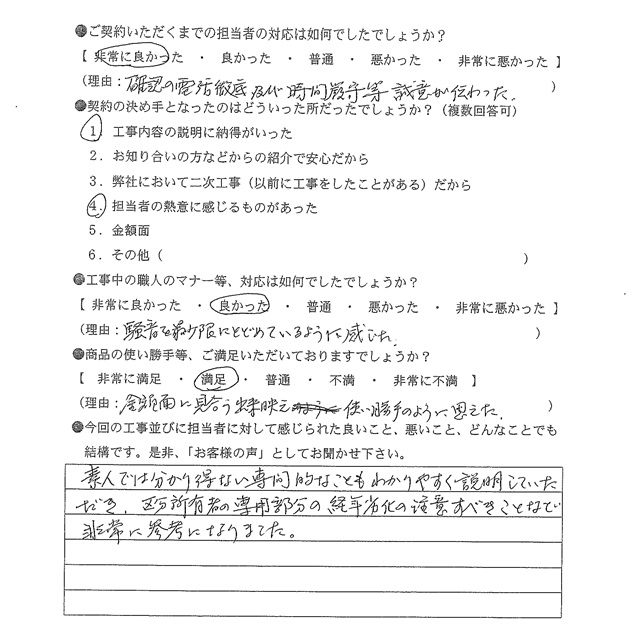 ●ご契約いただくまでの担当者の対応は如何でしたでしょうか？
【 非常に良かった ・ 良かった ・ 普通 ・ 悪かった ・ 非常に悪かった 】
(理由：確認の電話徹底及び時間厳守等誠意が伝わった. )
●契約の決め手となったのはどういった所だったでしょうか？（複数回答可）
1．工事内容の説明に納得がいった
2．お知り合いの方などからの紹介で安心だから
3．弊社において二次工事（以前に工事をしたことがある）だから
4．担当者の熱意に感じるものがあった
5．金額面
6．その他（ ）
●工事中の職人のマナー等、対応は如何でしたでしょうか？
【 非常に良かった ・ 良かった ・ 普通 ・ 悪かった ・ 非常に悪かった 】
(理由：騒音を最少限にとどめているように感じた. )
●商品の使い勝手等、ご満足いただいておりますでしょうか？
【 非常に満足 ・ 満足 ・ 普通 ・ 不満 ・ 非常に不満 】
(理由：金額面に見合う出来映え 使い勝手のように思えた. )
●今回の工事並びに担当者に対して感じられた良いこと、悪いこと、どんなことでも
結構です。是非、「お客様の声」としてお聞かせ下さい。
素人では分かり得ない専門的なこともわかりやすく説明していた
だき、区分所有者の専用部分の経年劣化の注意すべきことなど
非常に参考になりました。